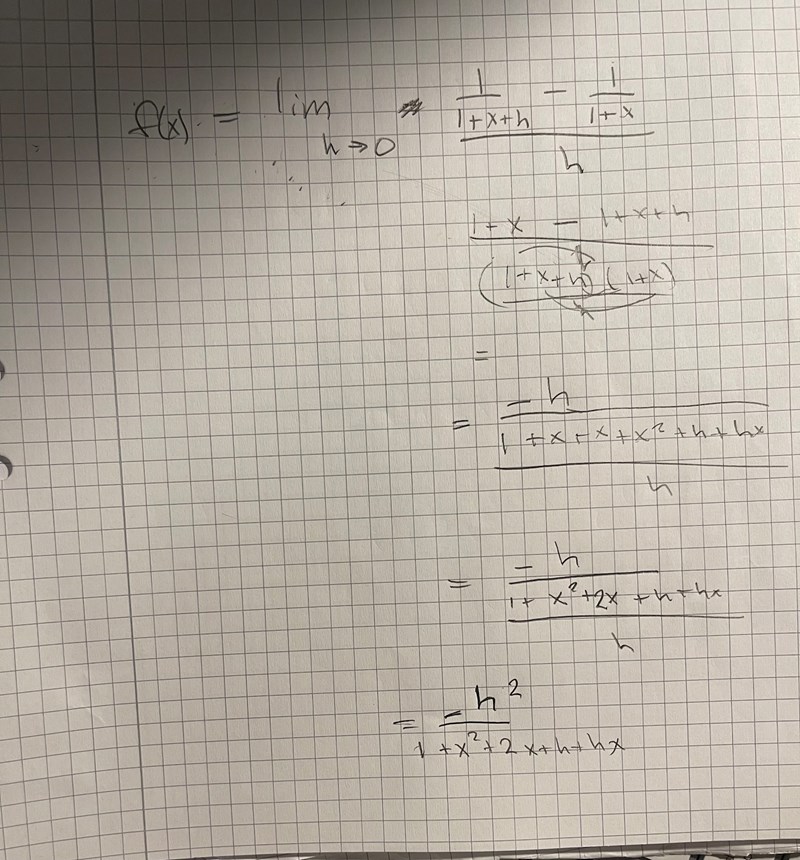 f(x) = lim h→0 (1/(1+x+h) − 1/(1+x))/h
(1+x − 1+x+h)/((1+x+h)(1+x))/h
=
= (−h/(1+x+x+x²+h+hx))/h
= (−h/(1+x²+2x+h+hx))/h
= −h²/(1+x²+2x+h+hx)